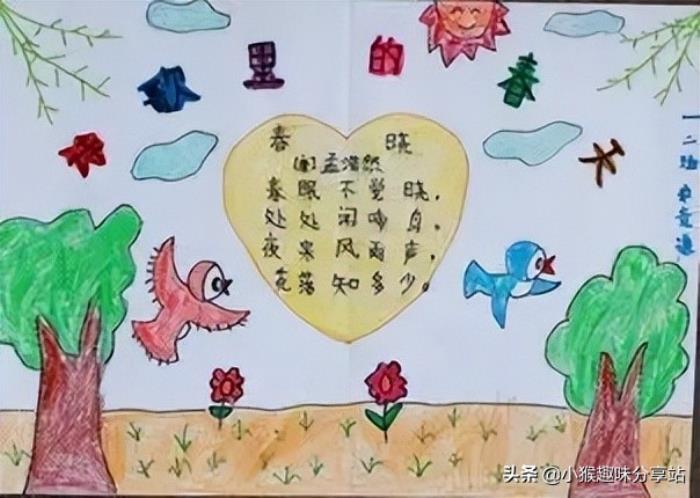 里的春天
春晓
[唐]孟浩然
春眠不觉晓，
处处闻啼鸟。
夜来风雨声，
花落知多少。
一二班
头条 @小猴趣味分享站